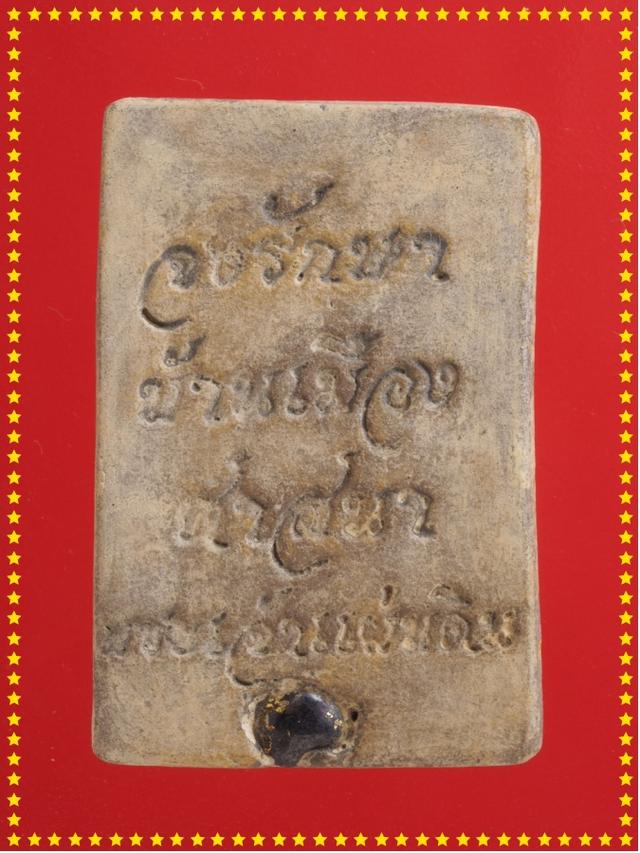 จงรักษา
บ้านเมือง
ศาสนา
พระเจ้าแผ่นดิน